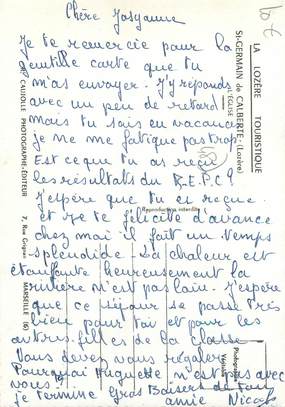 Chère Josyanne
Je te remercie pour la
gentille carte que tu
m'as envoyer. J'y réponds
avec un peu de retard!
mais tu sais en vacances
je ne me fatigue pas trop.
Est ce que tu as reçu
les résultats du B.E.P.C?
J'espère que tu es reçue
et je te félicite d'avance
chez moi il fait un temps
splendide. La chaleur est
étouffante heureusement la
rivière n'est pas loin. J'espère
que ce séjour se passe très
bien pour toi et pour les
autres filles de la classe
Vous devez vous régaler.
Pourquoi Huguette n'est pas avec
vous?
je termine Gros Baisers de ton
amie Nicole
LA LOZÈRE TOURISTIQUE
St-GERMAIN de CALBERTE (Lozère)
L'ÉGLISE
Reproduction interdite
CAUJOLLE PHOTOGRAPHE-ÉDITEUR
7, Rue Grignan
MARSEILLE (6)
Photographie